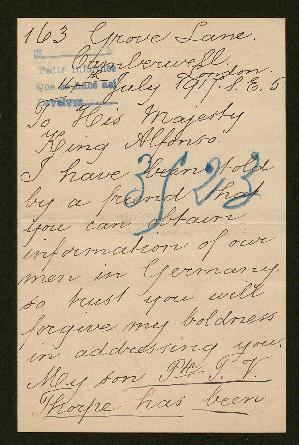 163 Grove Lane.
Camberwell,
London.
July 1917. S.E. 5.
Pedir informes
To His Majesty
King Alfonso.
3523
I have been told
by a friend that
you can obtain
information of our
men in Germany.
so trust you will
forgive my boldness
in addressing you.
My son Pte. T. V.
Thorpe has been